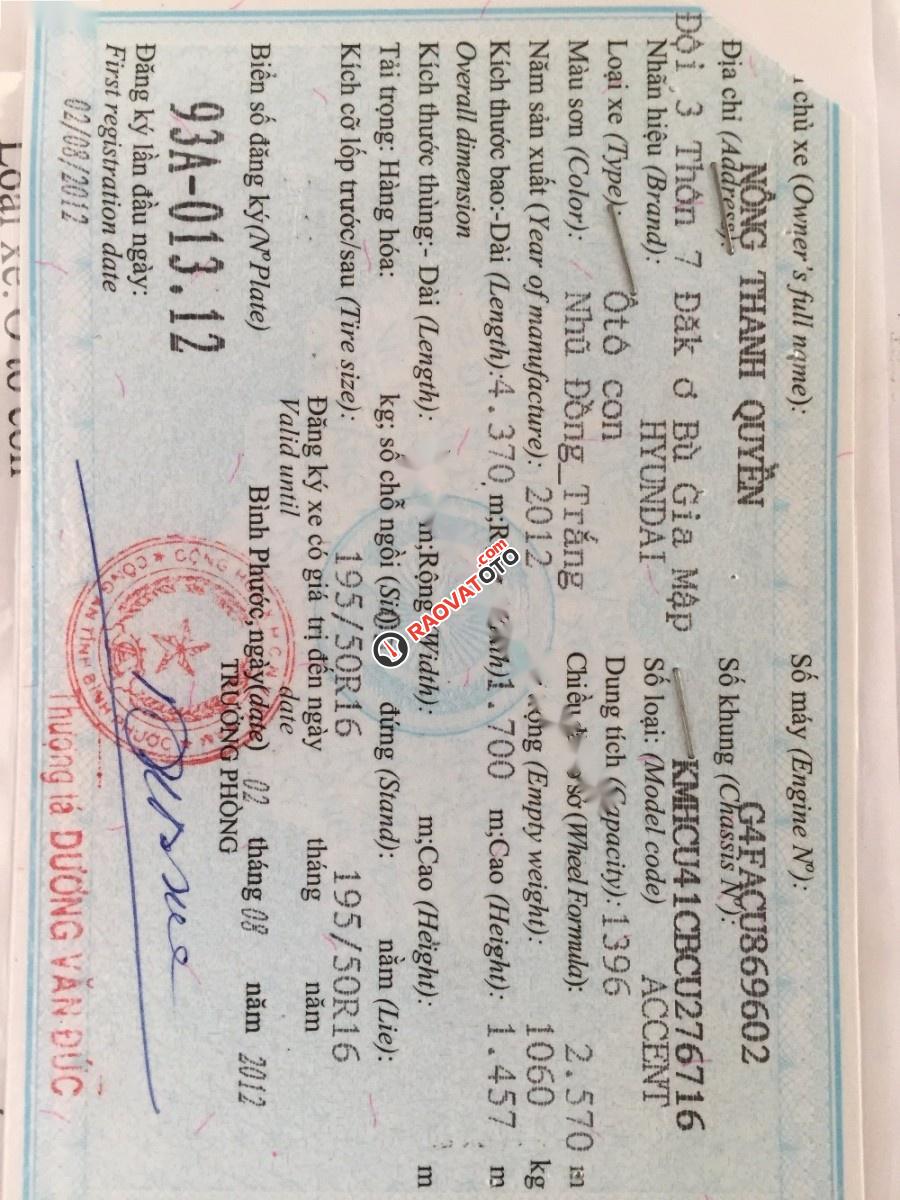 chủ xe (Owner's full name):
Số máy (Engine Nº):
NÔNG THANH QUYỀN
G4FACU869602
Địa chỉ (Address):
Số khung (Chassis Nº):
Đội 3 Thôn 7 Đăk ơ Bù Gia Mập
KMHCU41CBCU276716
Nhãn hiệu (Brand): HYUNDAI
Số loại: (Model code) ACCENT
Loại xe (Type): Ôtô con
Dung tích (Capacity): 1396
Màu sơn (Color): Nhũ Đồng_Trắng
Chiều sở (Wheel Formula): 2.570 m
Năm sản xuất (Year of manufacture): 2012
(Empty weight): 1060 kg
Kích thước bao:-Dài (Length): 4.370 m; 1.700 m;Cao (Height): 1.457 m
Overall dimension
Kích thước thùng:- Dài (Length): m;Rộng (Width): m;Cao (Height): m
Tải trọng: Hàng hóa: kg; số chỗ ngồi (Sit) đứng (Stand): nằm (Lie):
Kích cỡ lốp trước/sau (Tire size): 195/50R16 195/50R16
Đăng ký xe có giá trị đến ngày tháng năm
Valid until date
Biển số đăng ký(NºPlate)
Bình Phước, ngày(date) 02 tháng 08 năm 2012
TRƯỞNG PHÒNG
93A-013.12
Đăng ký lần đầu ngày:
First registration date
02/08/2012
Thượng tá DƯƠNG VĂN ĐỨC
RAOVATOTO.com